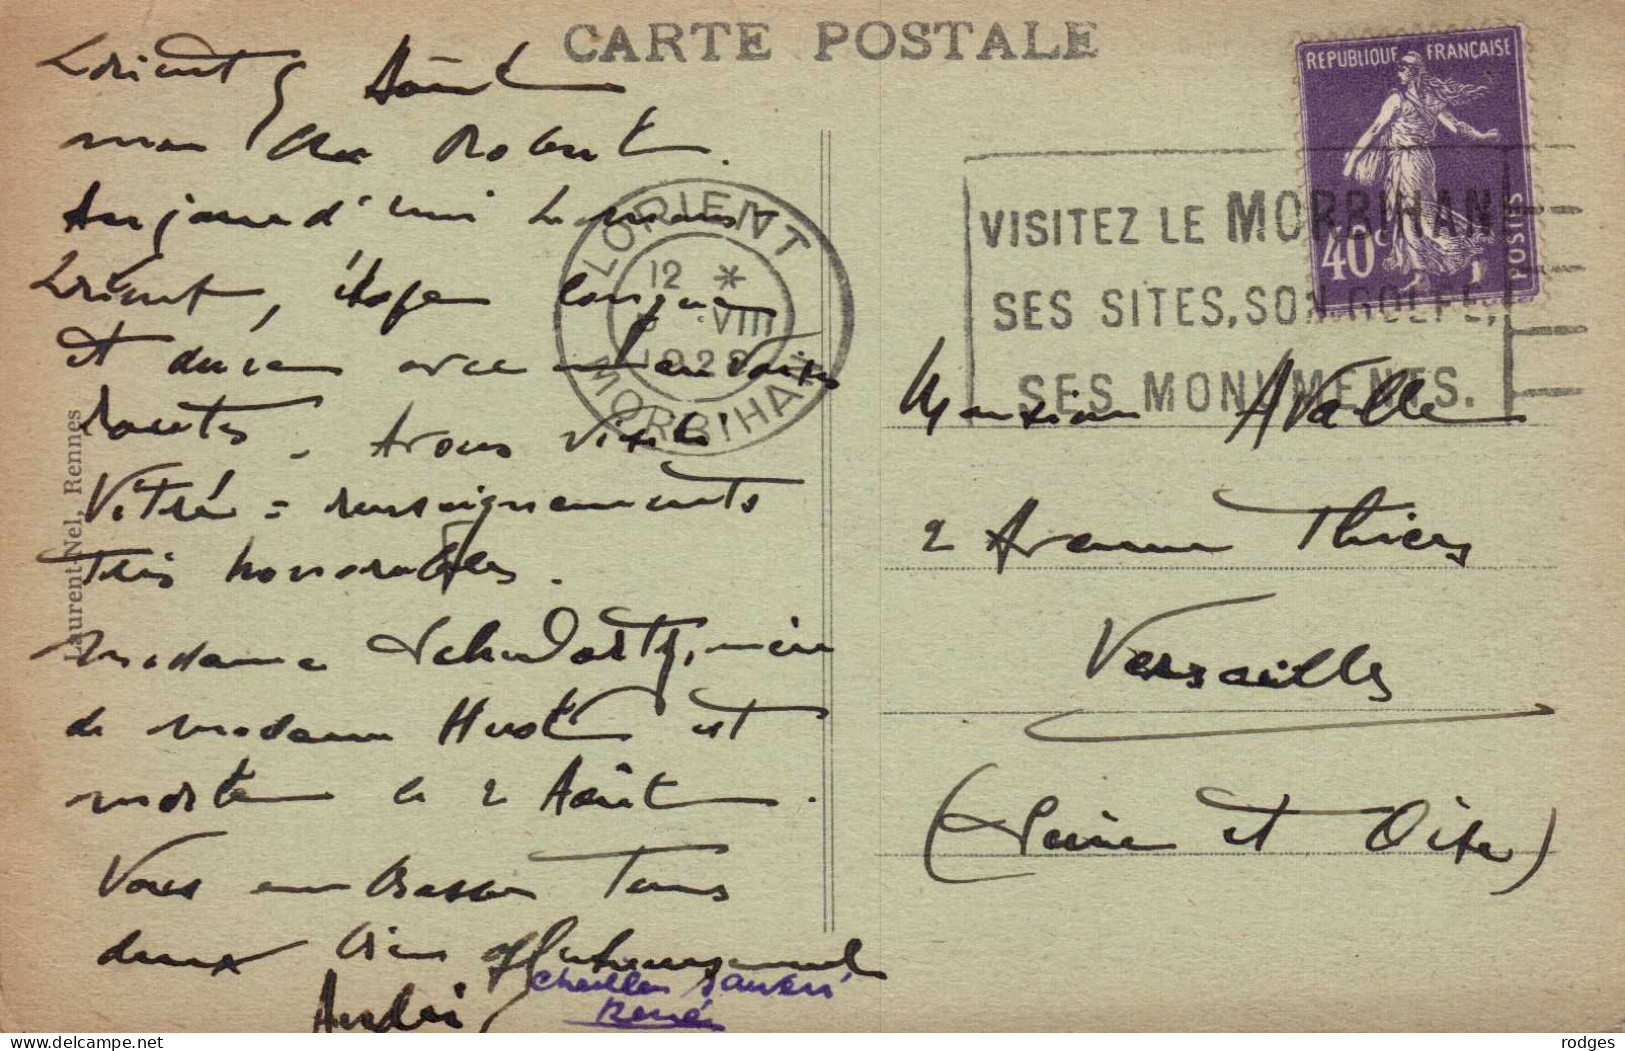 CARTE POSTALE
Lorient 5 Août
mon cher Robert.
Aujourd'hui Le mans
Lorient, étape longue
et dure avec mauvaises
routes. Avons visité
Vitré = renseignements
très honorables.
madame Schwartz, mère
de madame Hust est
morte le 2 Août.
Vous embrasse tous
deux bien affectueusement
André
René
Laurent-Nel, Rennes
LORIENT
12 *
5 VIII
192
MORBIHAN
VISITEZ LE MORBIHAN
SES SITES, SON GOLFE,
SES MONUMENTS.
REPUBLIQUE FRANÇAISE
40c
POSTES
Monsieur AValle
2 Avenue Thiers
Versailles
(Seine et Oise)
rodges | delcampe.net